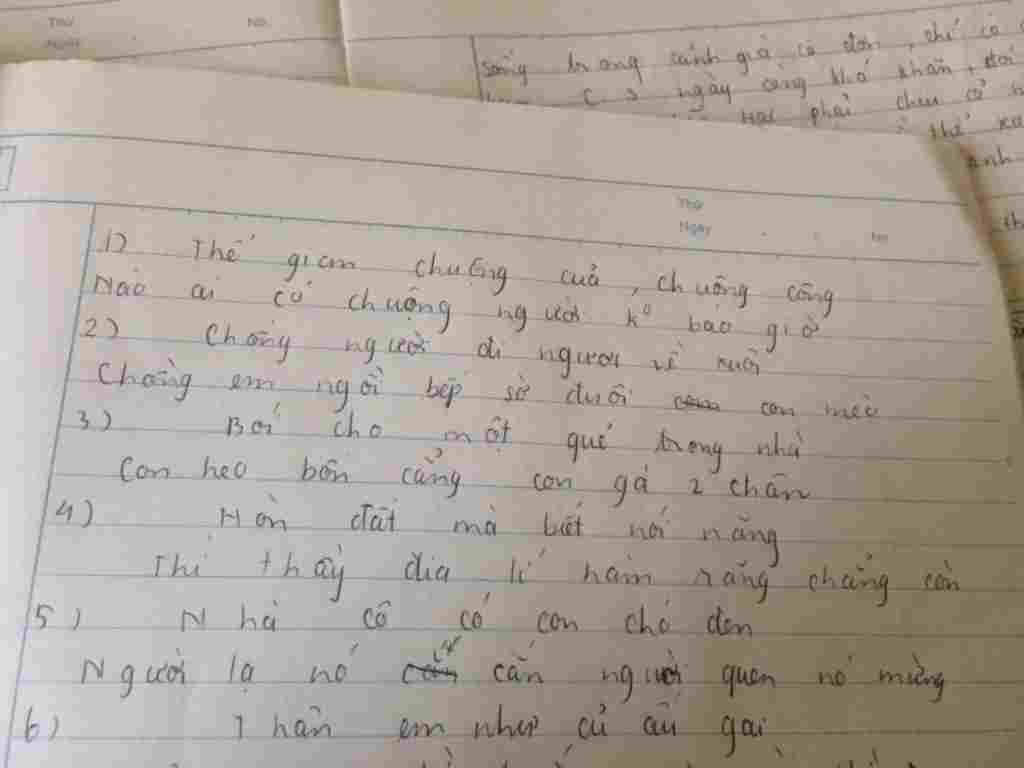 Thứ
Ngày
No.
sống trong cảnh già cô đơn, chỉ có
ngày càng khó khăn, đói
phải chịu cả
thế
anh
th
Thứ
Ngày
No
1) Thế gian chuộng của, chuông công
Nào ai có chuộng người k° bao giờ
2) Chồng người đi ngược về xuôi
Chồng em ngồi bếp sờ đuôi con mèo
3) Bói cho một quẻ trong nhà
Con heo bốn cẳng con gà 2 chân
4) Hòn đất mà biết nói năng
Thì thầy địa lí hàm răng chẳng còn
5) Nhà cô có con chó đen
Người lạ nó cắn người quen nó mừng
6) Thân em như củ ấu gai